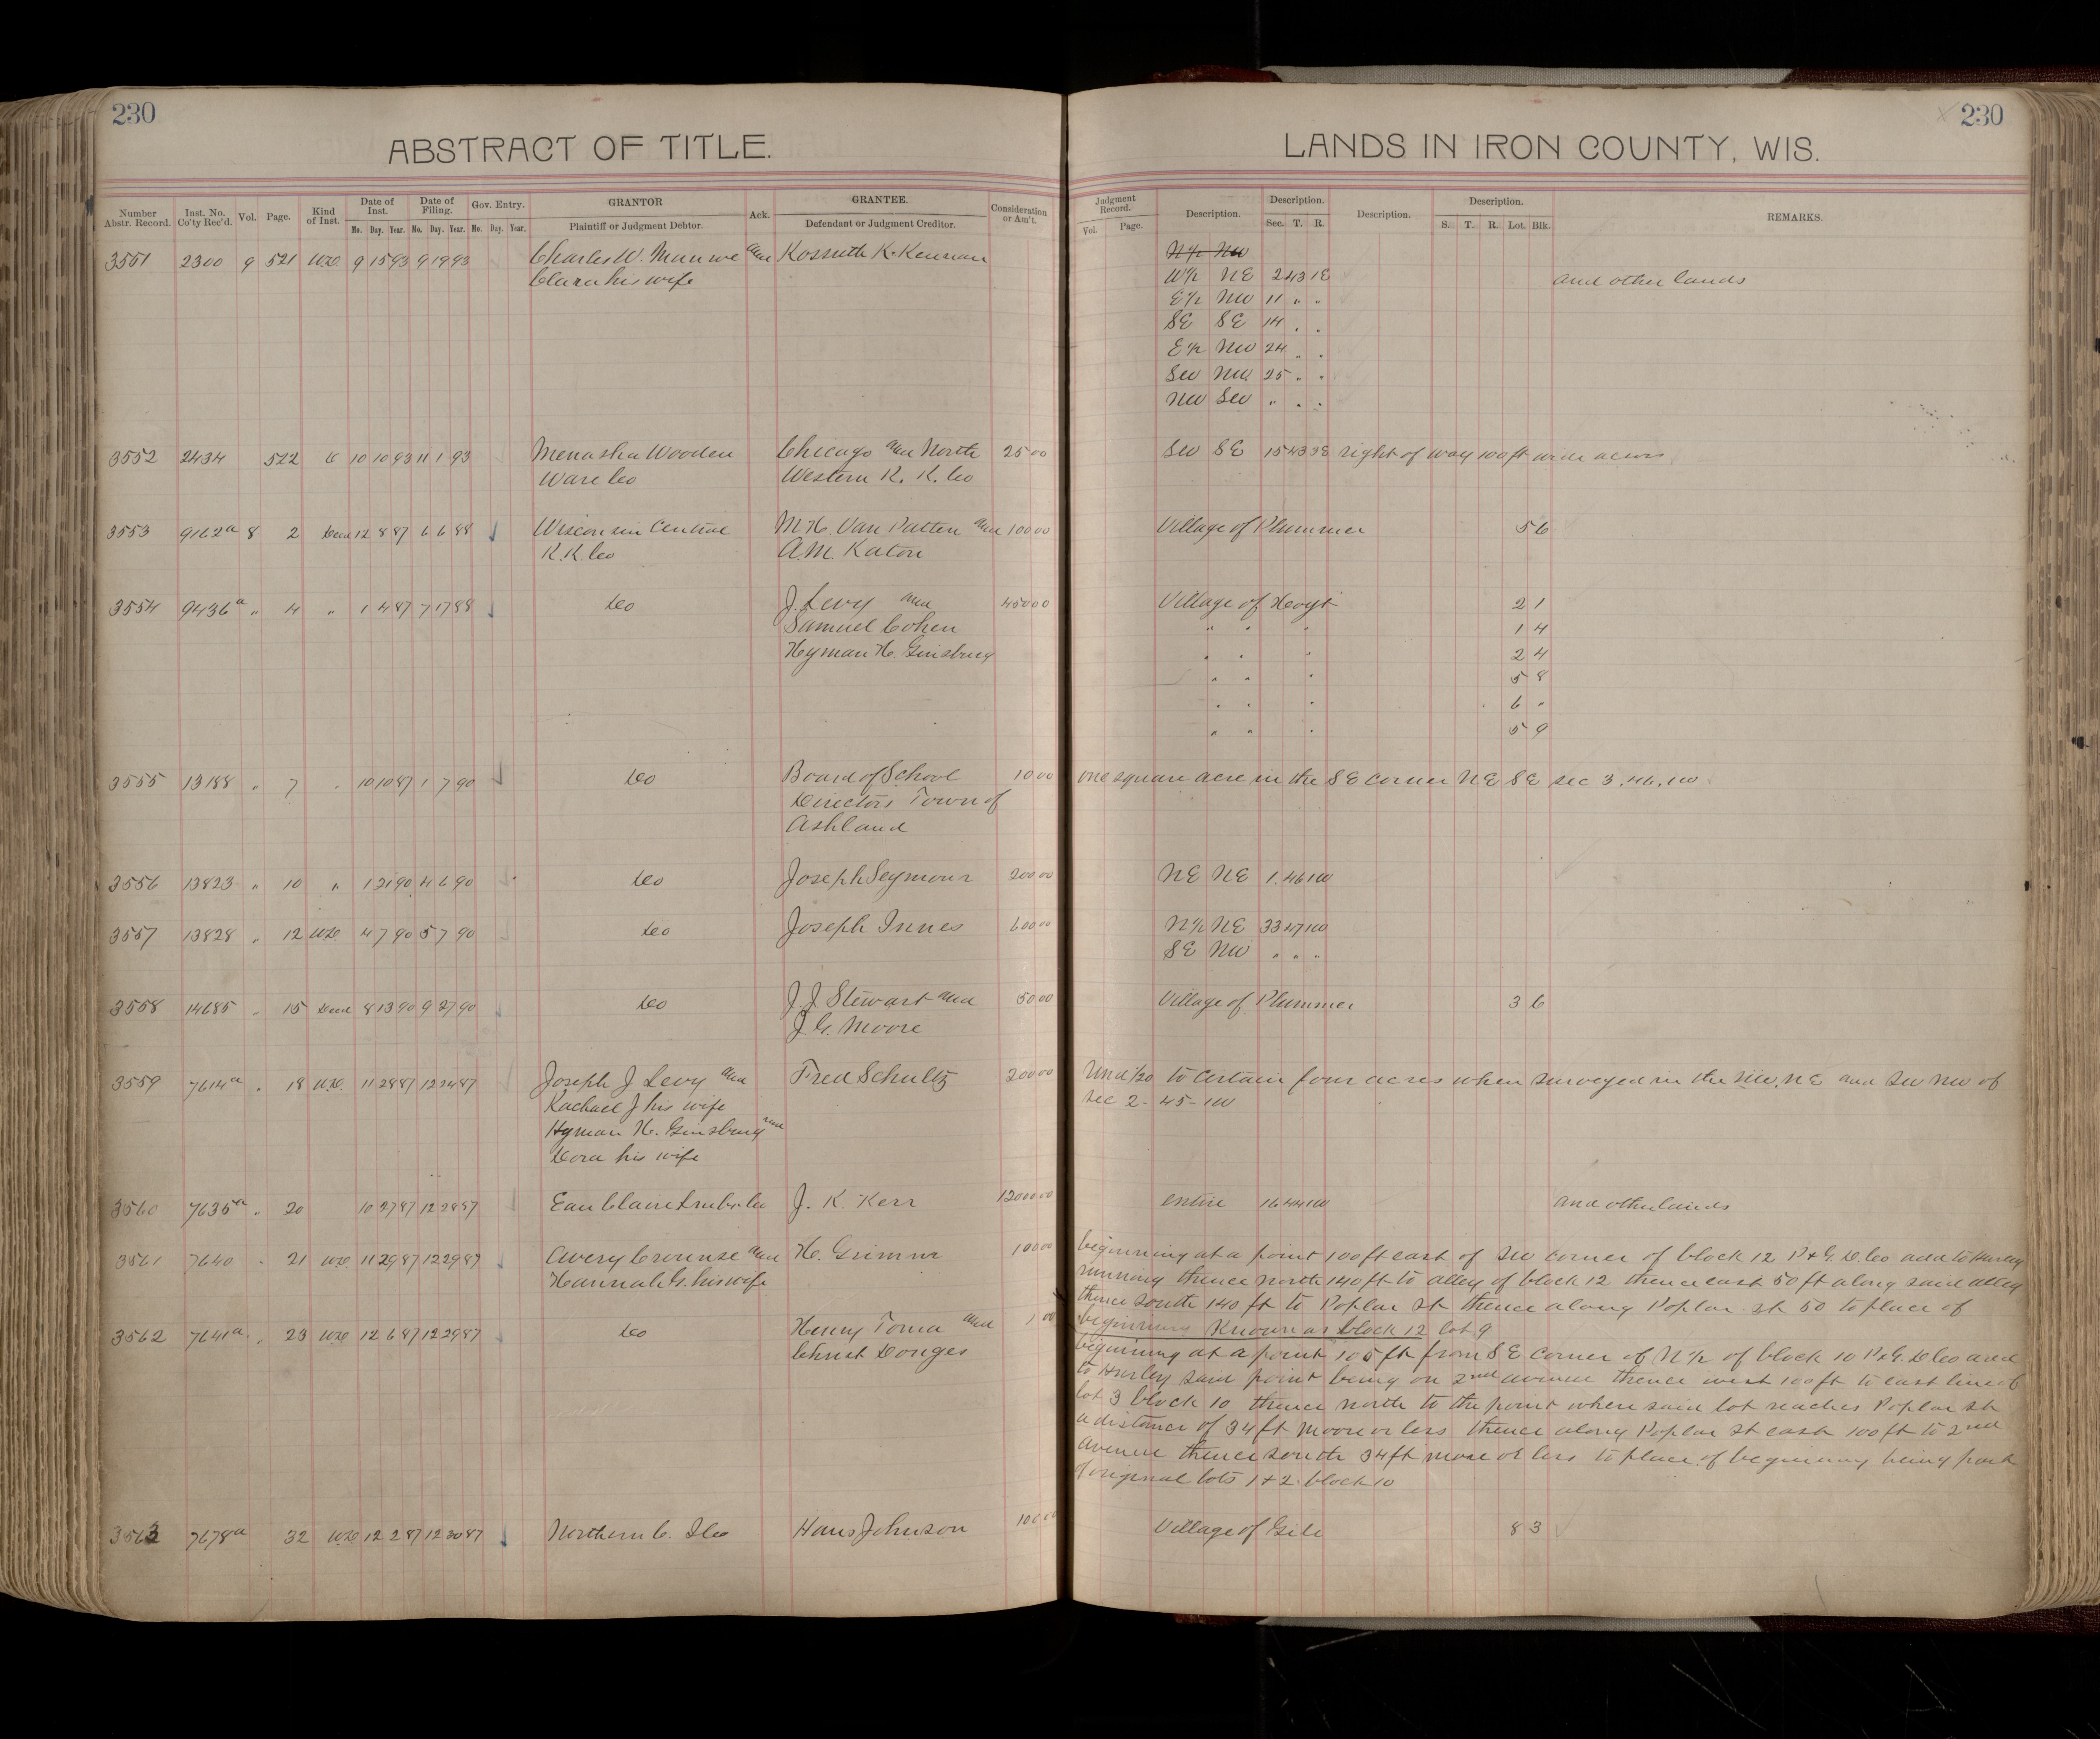 230
ABSTRACT OF TITLE.
Number Abstr. Record. Inst. No. Co'ty Rec'd. Vol. Page. Kind of Inst. Date of Inst. Mo. Day. Year. Date of Filing. Mo. Day. Year. Gov. Entry. Mo. Day. Year. GRANTOR Plaintiff or Judgment Debtor. Ack. GRANTEE. Defendant or Judgment Creditor. Consideration or Am't.
3551 2300 9 521 WD 9 15 93 9 19 93 Charles W. and Kossuth K. Kennan
Clara his wife
3552 2434 522 10 10 93 11 1 93 Menasha Wooden Chicago and North 25 00
Ware Co Western R. R. Co
3553 9162a 8 2 Deed 12 8 87 6 6 88 Wisconsin Central M H. Van Patten and 100 00
R. R. Co A. M. Katon
3554 9436a " 4 " 1 4 87 7 17 88 Do J. Levy and 450 00
Samuel Cohen
Hyman H. Ginsburg
3555 13188 " 7 " 10 10 87 1 7 90 Do Board of School 10 00
Directors Town of
Ashland
3556 13823 " 10 " 1 21 90 4 6 90 Do Joseph Seymour 200 00
3557 13828 " 12 WD 4 7 90 5 7 90 Do Joseph Innes 600 00
3558 14685 " 15 Deed 8 13 90 9 27 90 Do J. J. Stewart and 50 00
J. G. Moore
3559 7614a " 18 WD 11 28 87 12 24 87 Joseph J Levy and Fred Schultz 200 00
Rachael J his wife
Hyman H. Ginsburg and
Dora his wife
3560 7635a " 20 10 27 87 12 28 87 Eau Claire Lumber Co J. K. Kerr 1200 00
3561 7640 " 21 WD 11 29 87 12 29 87 Avery Crounse and H. Grimm 100 00
Hannah G. his wife
3562 7641a " 23 WD 12 6 87 12 29 87 Do Henry Toma and 1 00
Christ Donges
3563 7678a 32 WD 12 2 87 12 30 87 Northern C. I Co Hans Johnson 100 00
230
LANDS IN IRON COUNTY, WIS.
Judgment Record. Vol. Page. Description. Description. Sec. T. R. Description. Description. S. T. R. Lot. Blk. REMARKS.
N½ NW
W½ NE 2 43 1E and other lands
E½ NW 11 " "
SE SE 14 " "
E½ NW 24 " "
SW NW 25 " "
NW SW " " "
SW SE 15 43 3E right of way 100 ft wide across
Village of Plummer 5 6
Village of Hoyt 2 1
" " " 1 4
" " " 2 4
" " " 5 8
" " " 6 "
" " " 5 9
one square acre in the SE corner NE SE sec 3. 46. 1W
NE NE 1 46 1W
N½ NE 33 47 1W
SE NW " " "
Village of Plummer 3 6
Und 1/20 to certain four acres when surveyed in the NW, NE and SW NW of
sec 2 - 45 - 1W
entire 16 44 1W and other lands
beginning at a point 100 ft east of SW corner of block 12 P & G. D. Co add to Hurley
running thence north 140 ft to alley of block 12 thence east 50 ft along said alley
thence south 140 ft to Poplar St thence along Poplar St 50 to place of
beginning Known as block 12 lot 9
beginning at a point 105 ft from SE corner of N½ of block 10 P & G. D Co add
to Hurley said point being on 2nd avenue thence west 100 ft to east line of
lot 3 block 10 thence north to the point where said lot reaches Poplar St
a distance of 34 ft moore or less thence along Poplar St east 100 ft to 2nd
avenue thence south 34 ft more or less to place of beginning being part
of original lots 1 & 2 block 10
Village of Gile 8 3